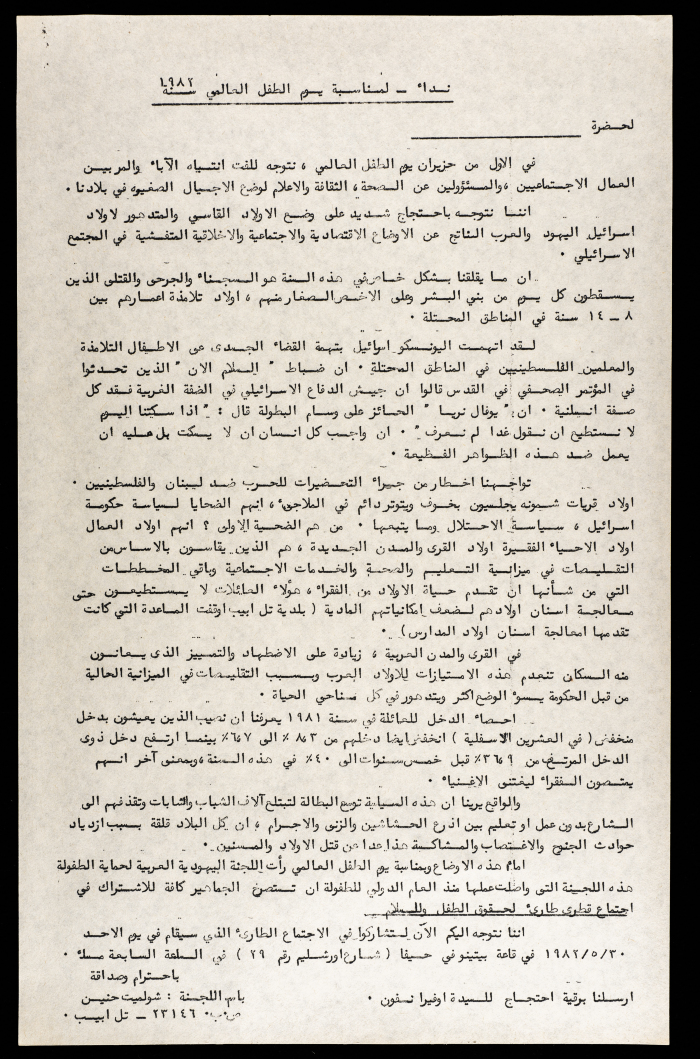 نداء - لمناسبة يوم الطفل العالمي سنة ١٩٨٢
لحضرة
في الاول من حزيران يوم الطفل العالمي ، نتوجه للفت انتباه الآباء والمربين
العمال الاجتماعيين ،والمسؤولين عن الصحة، الثقافة والاعلام لوضع الاجيال الصغيره في بلادنا .
اننا نتوجه باحتجاج شديد على وضع الاولاد القاسي والمتدهور لاولاد
اسرائيل اليهود والعرب الناتج عن الاوضاع الاقتصادية والاجتماعية والاخلاقية المتفشية في المجتمع
الاسرائيلي .
ان ما يقلقنا بشكل خاص في هذه السنة هو السجناء والجرحى والقتلى الذين
يسقطون كل يوم من بني البشر وعلى الاخص الصغار منهم ، اولاد تلامذة اعمارهم بين
٨ - ١٤ سنة في المناطق المحتلة .
لقد اتهمت اليونسكو اسرائيل بتهمة القضاء الجسدى على الاطفال التلامذة
والمعلمين الفلسطينيين في المناطق المحتلة . ان ضباط " السلام الان " الذين تحدثوا
في المؤتمر الصحفي في القدس قالوا ان جيش الدفاع الاسرائيلي في الضفة الغربية فقد كل
صفة انسانية . ان " يوفال نريا " الحائز على وسام البطولة قال : " اذا سكتنا اليوم
لا نستطيع ان نقول غدا لم نعرف" . ان واجب كل انسان ان لا يسكت بل عليه ان
يعمل ضد هذه الظواهر الفظيعة .
تواجهنا اخطار من جراء التحضيرات للحرب ضد لبنان والفلسطينيين .
اولاد قريات شمونه يجلسون بخوف وبتوتر دائم في الملاجئ، انهم الضحايا لسياسة حكومة
اسرائيل ، سياسة الاحتلال وما يتبعها . من هم الضحية الاولى ؟ انهم اولاد العمال
اولاد الاحياء الفقيرة اولاد القرى والمدن الجديدة ، هم الذين يقاسون بالاساس من
التقليصات في ميزانية التعليم والصحة والخدمات الاجتماعية وباقي المخططات
التي من شأنها ان تقدم حياة الاولاد من الفقراء، هؤلاء العائلات لا يستطيعون حتى
معالجة اسنان اولادهم لضعف امكانياتهم المادية ( بلدية تل ابيب اوقفت المساعدة التي كانت
تقدمها لمعالجة اسنان اولاد المدارس) .
في القرى والمدن العربية ، زيادة على الاضطهاد والتمييز الذى يعانون
منه السكان تنعدم هذه الامتيازات للاولاد العرب وبسبب التقليصات في الميزانية الحالية
من قبل الحكومة يسوء الوضع اكثر ويتدهور في كل مناحي الحياة .
احصاء الدخل للعائلة في سنة ١٩٨١ يعرفنا ان نصيب الذين يعيشون بدخل
منخفض ( في العشرين الاسفلية ) انخفض ايضا دخلهم من ٨،٣ ٪ الى ٦،٧٪ بينما ارتفع دخل ذوى
الدخل المرتفع من ٣٦،٩ ٪ قبل خمس سنوات الى ٤٠٪ في هذه السنة ،وبمعنى آخر انهم
يمتصون الفقراء ليغتني الاغنياء .
والواقع يرينا ان هذه السياسة توسع البطالة لتبتلع آلاف الشباب والشابات وتقذفهم الى
الشارع بدون عمل او تعليم بين اذرع الحشاشين والزنى والاجرام ، ان كل البلاد قلقة بسبب ازدياد
حوادث الجنوح والاغتصاب والمشاكسة هذا عدا عن قتل الاولاد والمسنين .
امام هذه الاوضاع وبمناسبة يوم الطفل العالمي رأت اللجنة اليهودية العربية لحماية الطفولة
هذه اللجنة التي واصلت عملها منذ العام الدولي للطفولة ان تستصرخ الجماهير كافة للاشتراك في
اجتماع قطرى طارئ لحقوق الطفل وللسلام
اننا نتوجه اليكم الآن لتشاركوا في الاجتماع الطارئ الذي سيقام في يوم الاحد
١٩٨٢/٥/٣٠ في قاعة بيتينو في حيفا ( شارع اورشليم رقم ٢٩ ) في الساعة السابعة مساء .
باحترام وصداقة
ارسلنا برقية احتجاج للسيدة اوفيرا نفون . باسم اللجنة : شولميت حنين
ص.ب. ٢٣١٤٦ - تل ابيب .